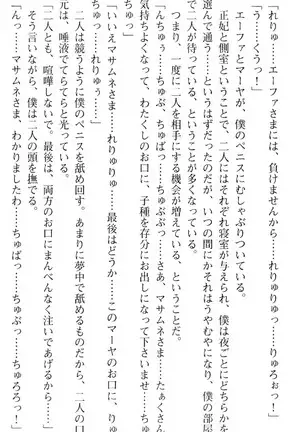 「れりゅ……エーファさまには、負けませんから……れりゅりゅっ……りゅろぉっ！」
「う……くうっ！」
　エーファとマーヤが、僕のペニスにむしゃぶりついている。
　正妃と側室ということで、二人にはそれぞれ寝室が与えられ、僕は夜ごとにどちらかを
選んで通う……というはずだったのだが、いつの間にかそれはうやむやになり、僕の部屋
で二人が待っている、ということが多くなっている。
　つまり、一度に二人を相手にする機会が増えている、ということだ。
「んちゅぅ……ちゅぶ、ちゅばっ……ちゅぶぶっ……さあ、マサムネさま……たぁくさん
気持ちよくなって、わたくしのお口に、子種を存分にお出しになって下さいませ……ちゅ
ちゅっ」
「いいえマサムネさま……れりゅりゅ……最後はどうか……このマーヤのお口に、りゅ
ちゅっ……れりゅ……」
　二人は競うように僕のペニスを舐め回す。あまりに夢中で舐めるものだから、二人の口
元は、唾液でてらてらと光っている。
「二人とも、喧嘩しないで。最後は、両方のお口にまんべんなく注いであげるから……」
　そう言いながら、僕は二人の頭を撫でる。
「んっ……マサムネさま、わかりましたわ……ちゅばっ……ちゅぶっ……ちゅろろっ！」